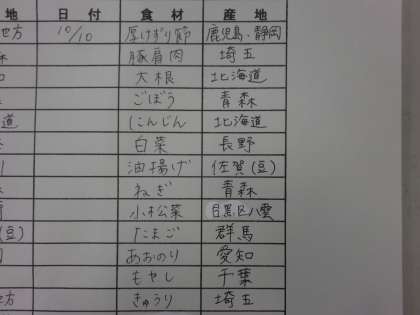 地 日付 食材 産地
地方 10/10 厚けずり節 鹿児島・静岡
豚肩肉 埼玉
大根 北海道
ごぼう 青森
道 にんじん 北海道
白菜 長野
油揚げ 佐賀(豆)
ねぎ 青森
小松菜 目黒区八雲
(豆) たまご 群馬
あおのり 愛知
もやし 千葉
地方 きゅうり 埼玉